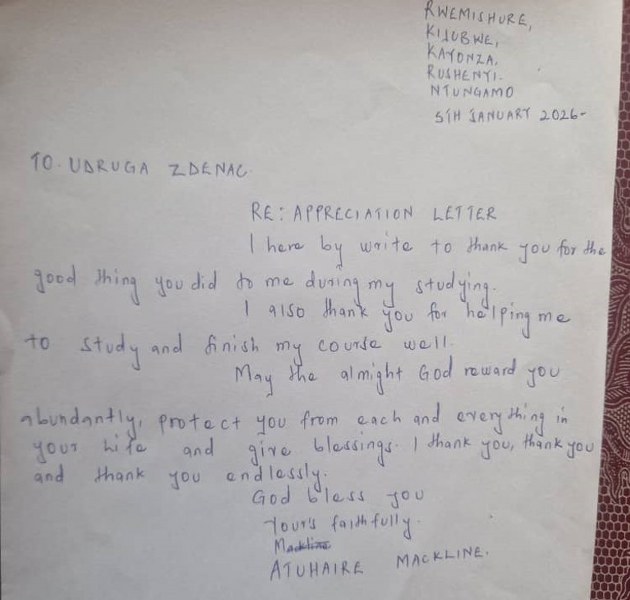 RWEMISHURE,
KISUBWE,
KAYONZA.
RUSHENYI.
NTUNGAMO
5TH JANUARY 2026-
TO. UDRUGA ZDENAC.
RE: APPRECIATION LETTER
I here by write to thank you for the
good thing you did to me during my studying.
I also thank you for helping me
to study and finish my course well.
May the almight God reward you
abundantly, protect you from each and everything in
your life and give blessings. I thank you, thank you
and thank you endlessly.
God bless you
Yours faithfully.
Mackline
ATUHAIRE MACKLINE.